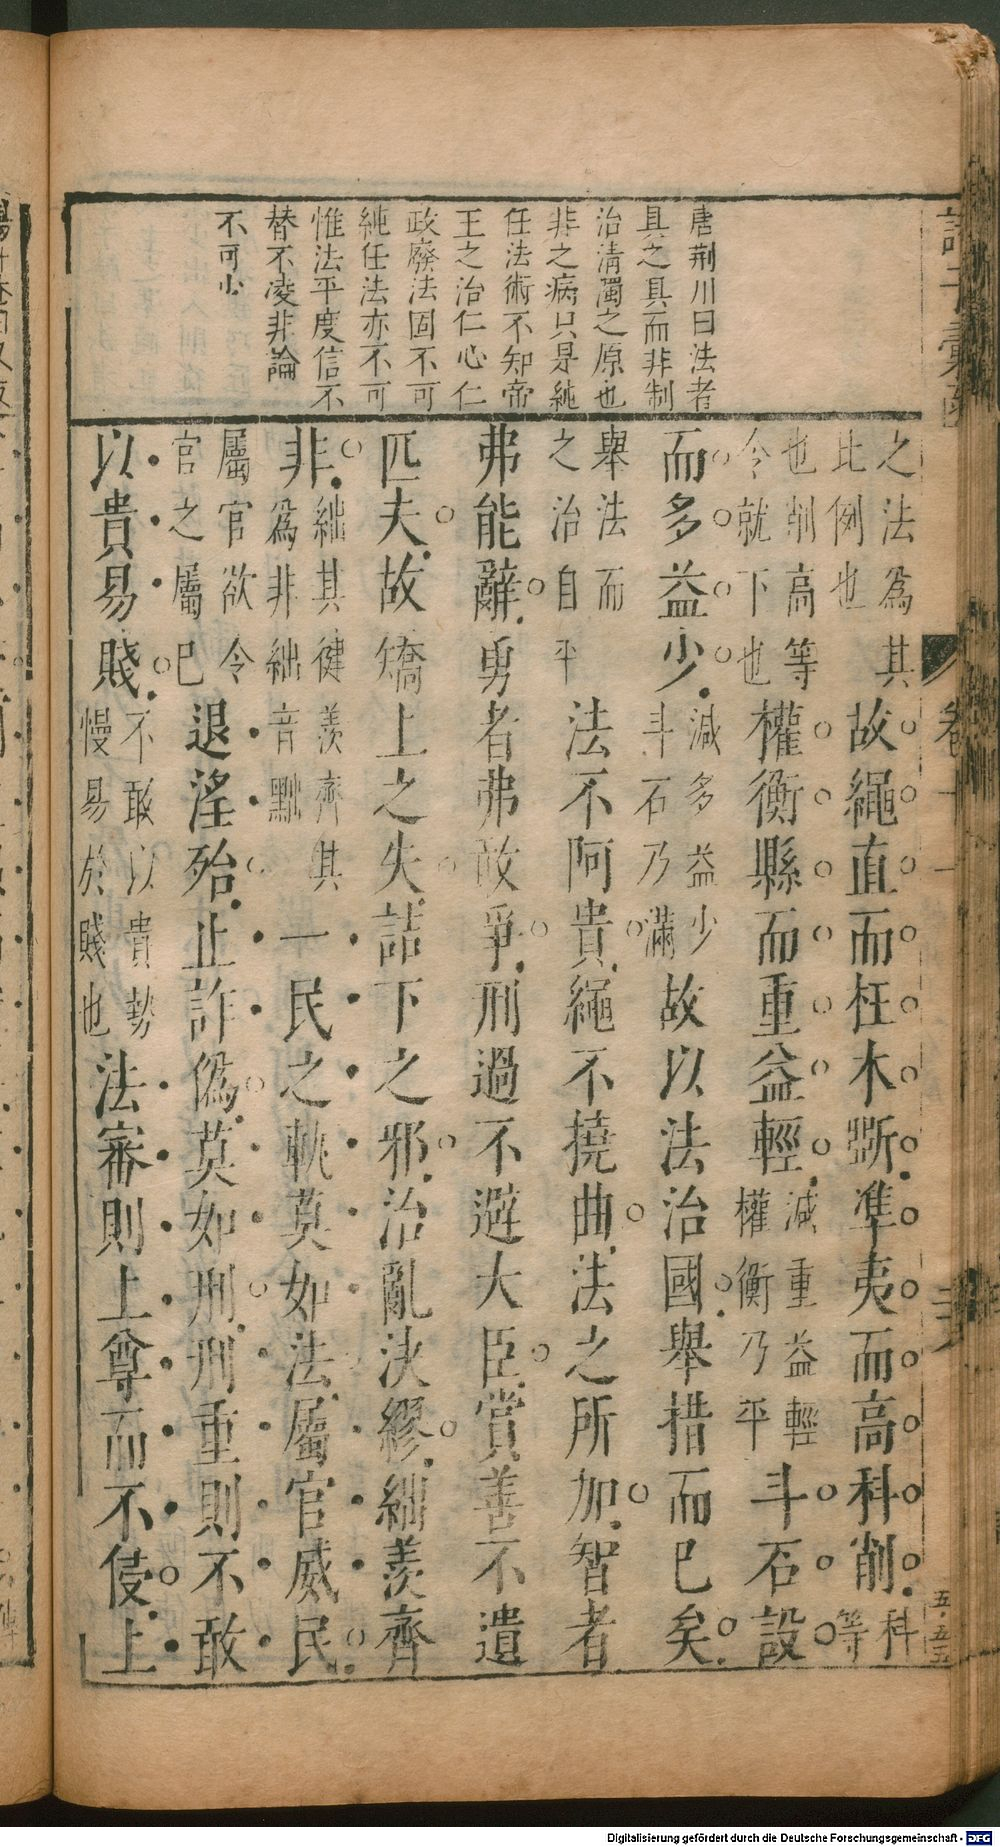 唐荆川曰法者
具之具而非制
治淸濁之原也
非之病只是純
任法術不知帝
王之治仁心仁
政廢法固不可
純任法亦不可
惟法平度信不
替不凌非論
不可少
之法爲其
比例也
故繩直而枉木斲準夷而高科削
科
等
也削高等
令就下也
權衡縣而重益輕
減重益輕
權衡乃平
斗石設
而多益少
減多益少
斗石乃滿
故以法治國舉措而已矣
舉法而
之治自平
法不阿貴繩不撓曲法之所加智者
弗能辭勇者弗敢爭刑過不避大臣賞善不遺
匹夫故矯上之失詰下之邪治亂決繆絀羡齊
非
絀其健羨齊其
爲非絀音黜
一民之軌莫如法屬官威民
屬官欲令
官之屬已
退淫殆止詐僞莫如刑刑重則不敢
以貴易賤
不敢以貴勢
慢易於賤也
法審則上尊而不侵上
卷十一
二八
五·五五
Digitalisierung gefördert durch die Deutsche Forschungsgemeinschaft - DFG